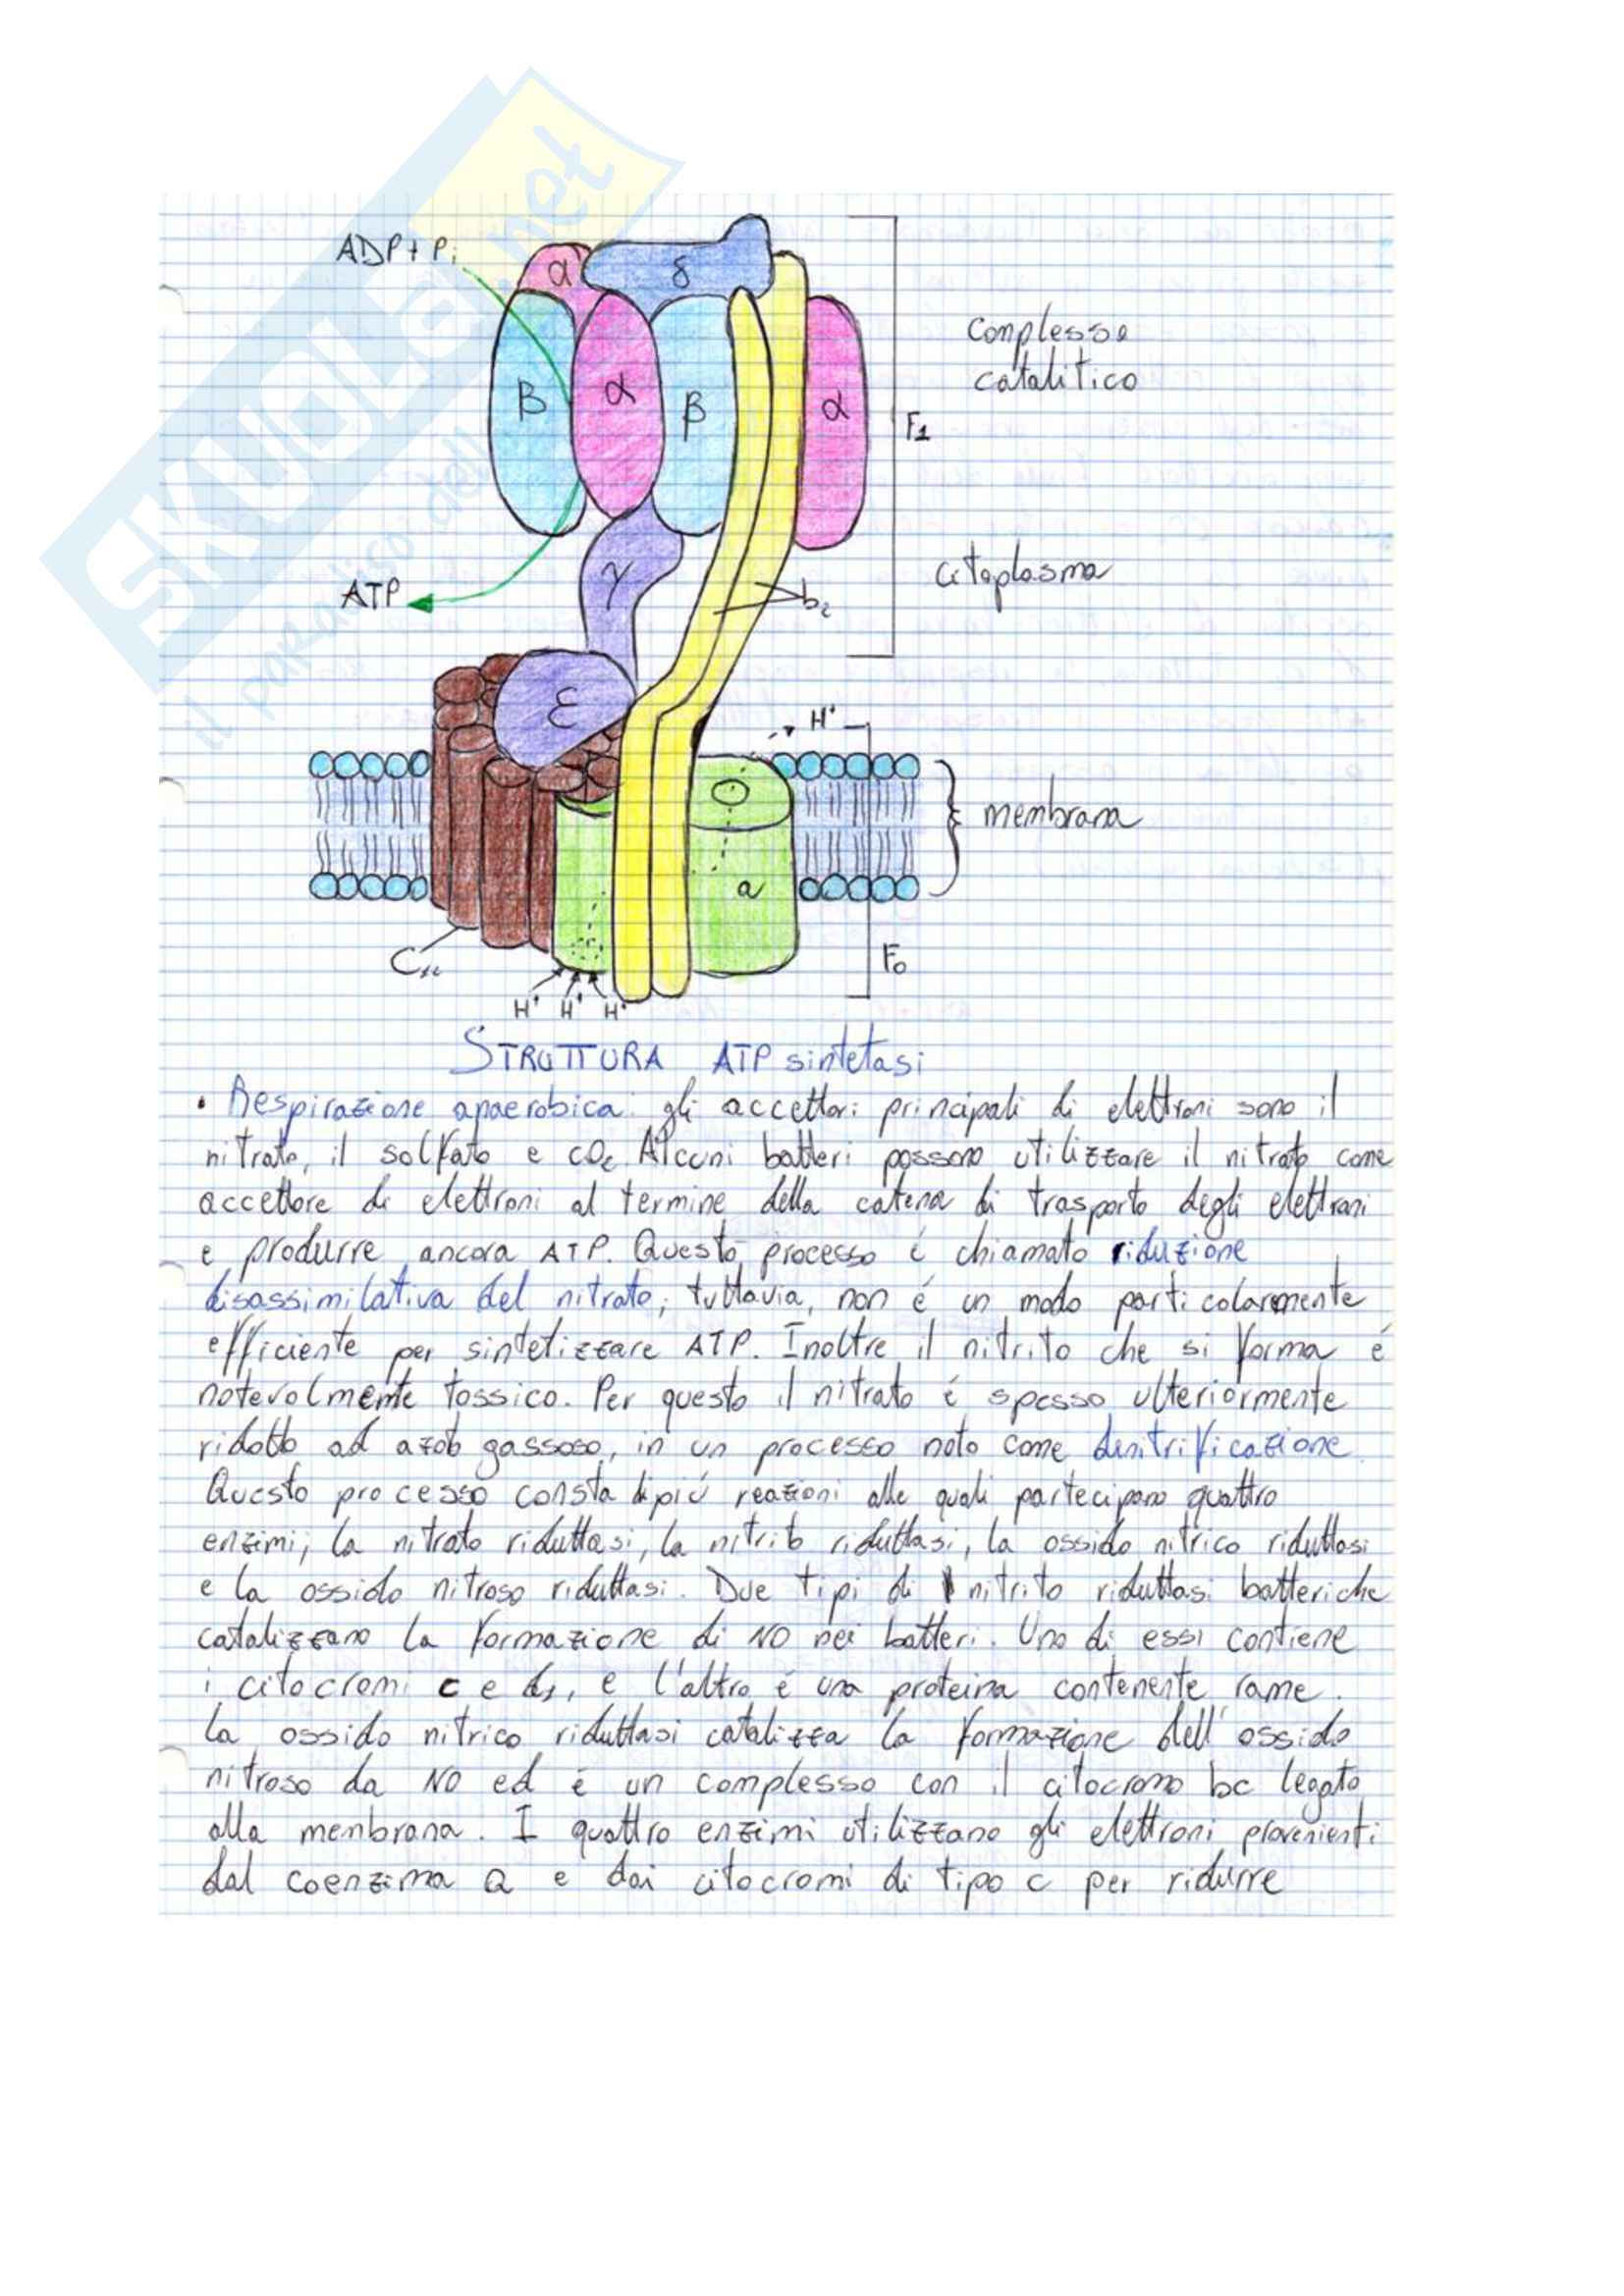 SKUOLA.net
il paradiso dell
ADP + Pi
α
δ
β
α
β
α
Complesso
catalitico
F1
γ
citoplasma
ATP
b2
ε
H+
membrana
a
C12
F0
H+ H+ H+
STRUTTURA ATP sintetasi
• Respirazione anaerobica: gli accettori principali di elettroni sono il
nitrato, il solfato e CO2. Alcuni batteri possono utilizzare il nitrato come
accettore di elettroni al termine della catena di trasporto degli elettroni
e produrre ancora ATP. Questo processo é chiamato riduzione
disassimilativa del nitrato; tuttavia, non é un modo particolarmente
efficiente per sintetizzare ATP. Inoltre il nitrito che si forma é
notevolmente tossico. Per questo il nitrato é spesso ulteriormente
ridotto ad azoto gassoso, in un processo noto come denitrificazione.
Questo processo consta di piú reazioni alle quali partecipano quattro
enzimi; la nitrato riduttasi, la nitrito riduttasi, la ossido nitrico riduttasi
e la ossido nitroso riduttasi. Due tipi di nitrito riduttasi batteriche
catalizzano la formazione di NO nei batteri. Uno di essi contiene
i citocromi c e d1, e l'altro é una proteina contenente rame.
La ossido nitrico riduttasi catalizza la formazione dell'ossido
nitroso da NO ed é un complesso con il citocromo bc legato
alla membrana. I quattro enzimi utilizzano gli elettroni provenienti
dal coenzima Q e dai citocromi di tipo c per ridurre